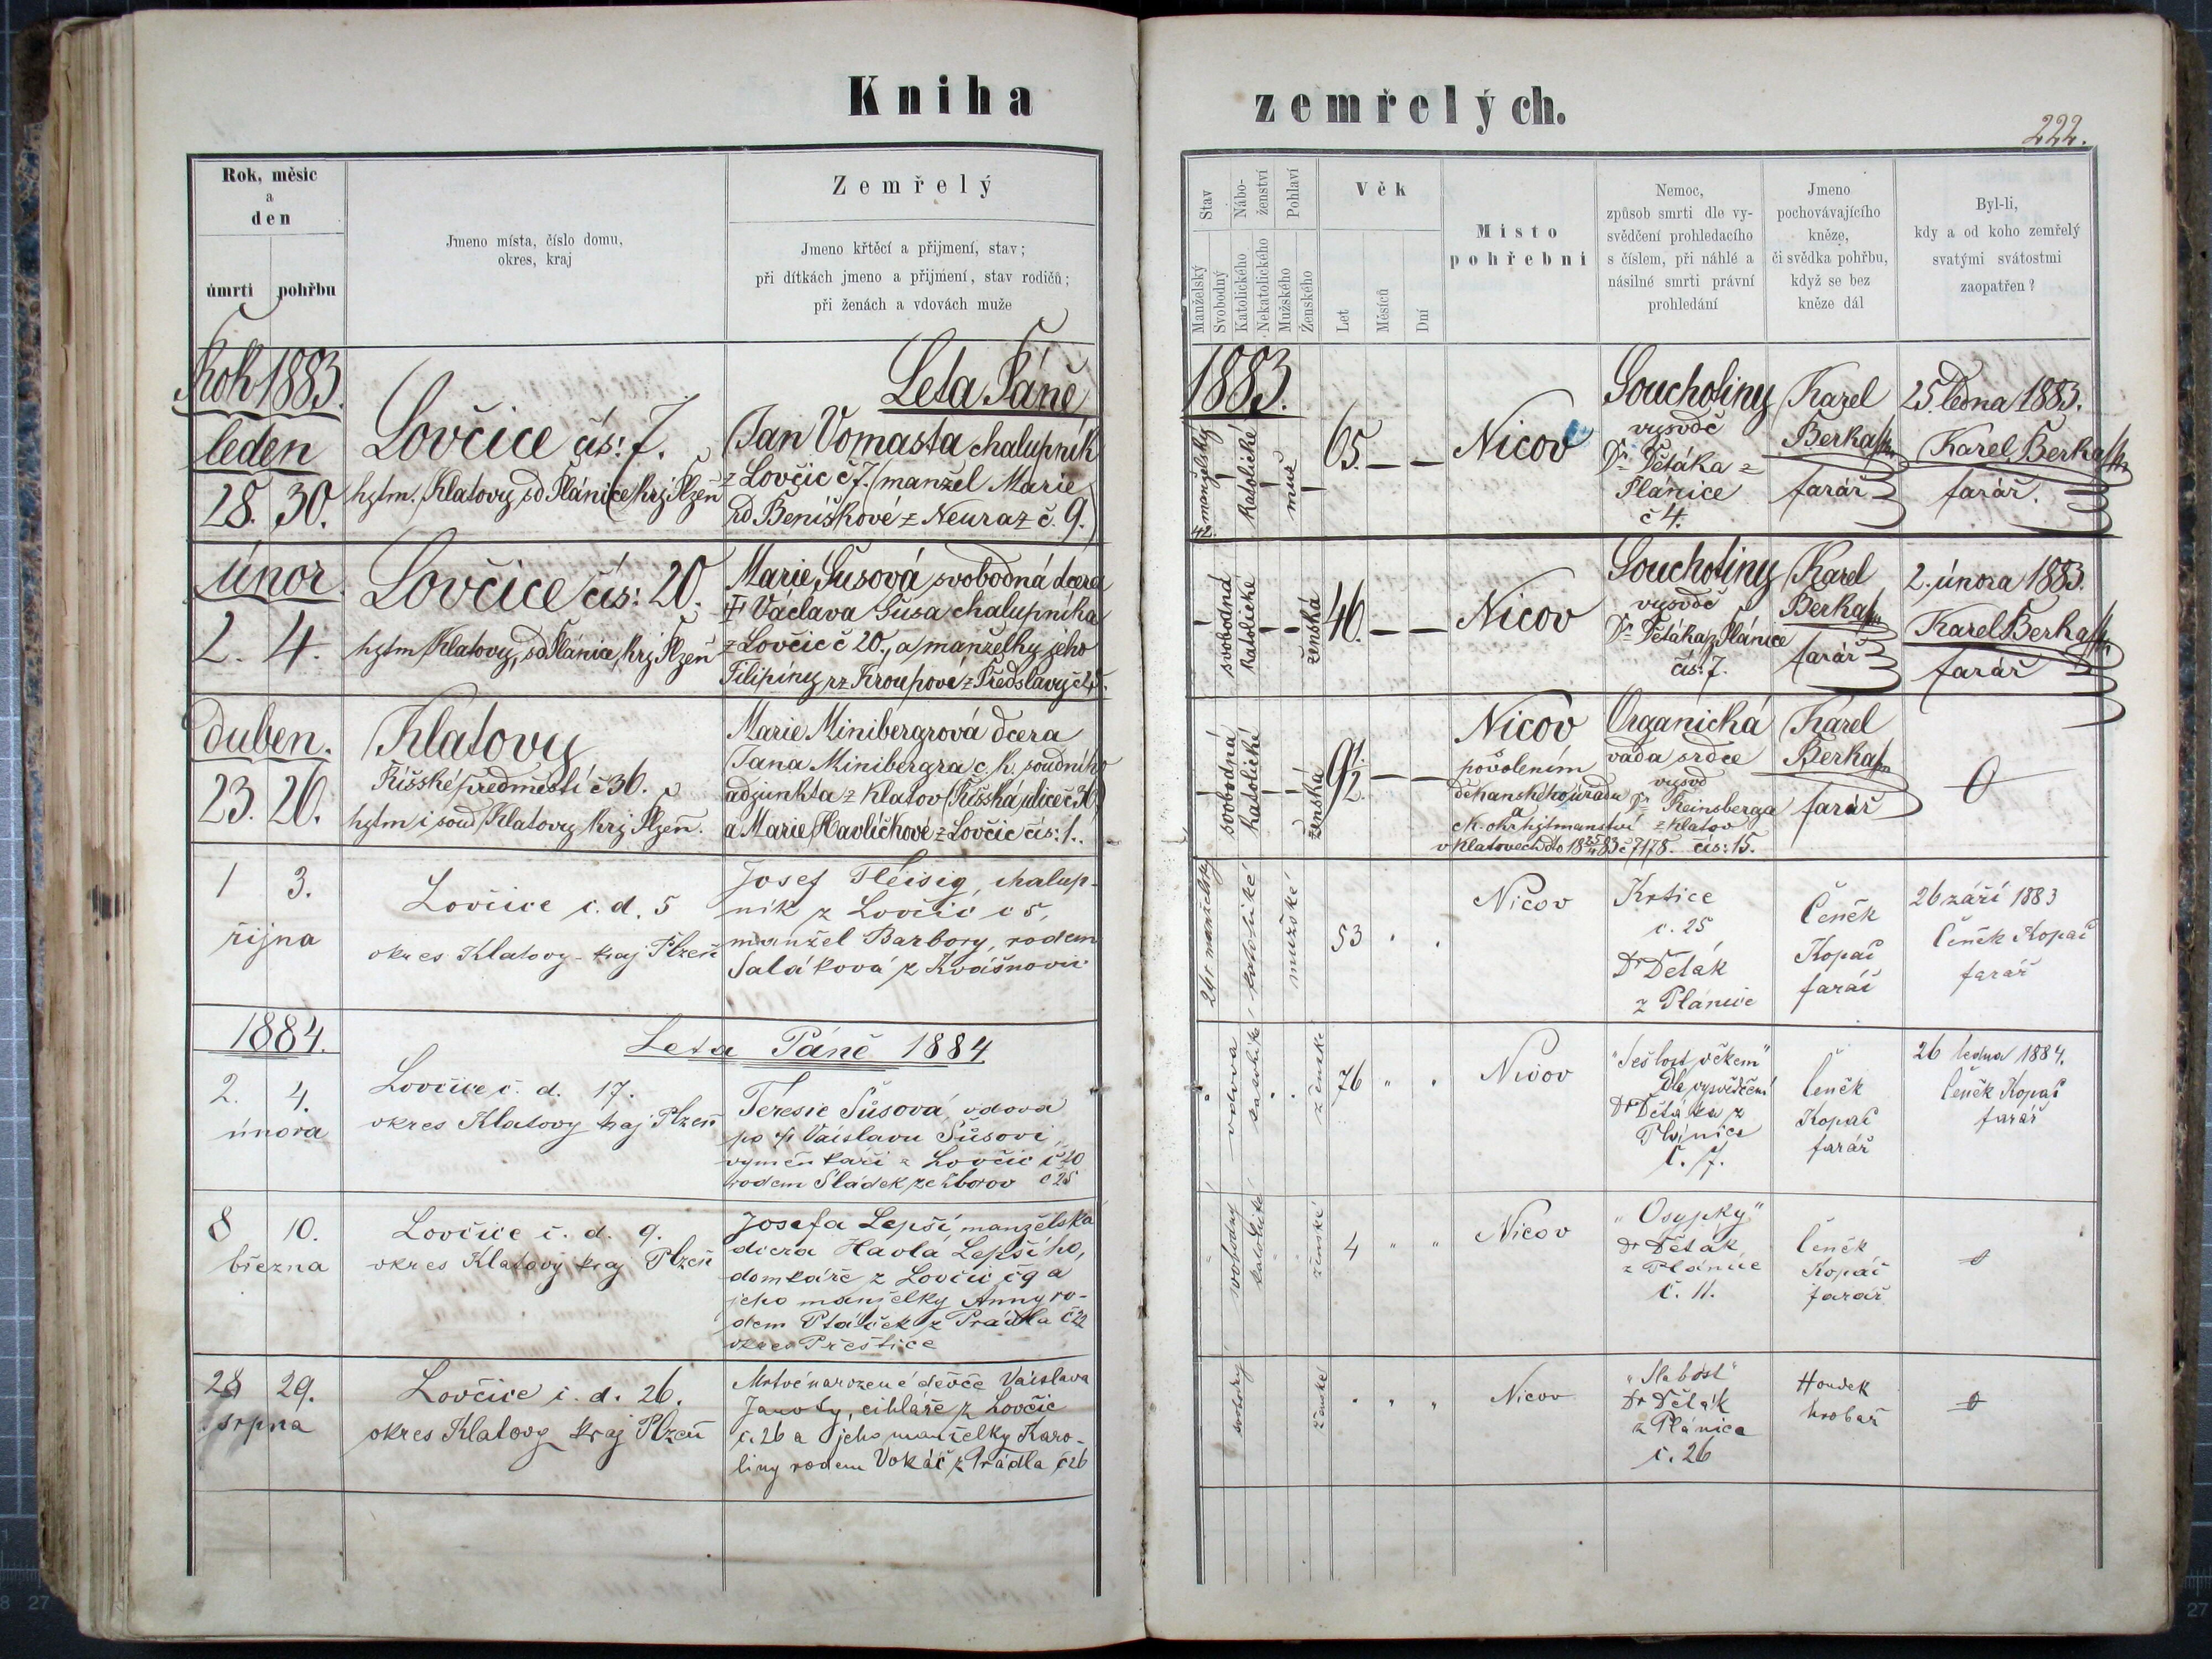 Kniha
zemřelých.
222.
Rok, měsíc
a
den
úmrtí pohřbu
Jmeno místa, číslo domu,
okres, kraj
Zemřelý
Jmeno křtěcí a přijmení, stav;
při dítkách jmeno a přijmení, stav rodičů;
při ženách a vdovách muže
Stav
Manželský
Svobodný
Nábo-
ženství
Katolického
Nekatolického
Pohlaví
Mužského
Ženského
Věk
Let
Měsíců
Dní
Místo
pohřební
Nemoc,
způsob smrti dle vy-
svědčení prohledacího
s číslem, při náhlé a
násilné smrti právní
prohledání
Jmeno
pochovávajícího
kněze,
či svědka pohřbu,
když se bez
kněze dál
Byl-li,
kdy a od koho zemřelý
svatými svátostmi
zaopatřen?
Rok 1883.
Leta Páně
1883.
leden
28. 30.
Lovčice čís: 7.
hejtm. Klatovy, sd Plánice krj Plzeň
Jan Vomasta chalupník
z Lovčic č 7. (manžel Marie
rd Beníškové z Neuraz č. 9.)
42.
manželský
katolické
muž
65. — —
Nicov
Souchotiny
vysvdč
Dr Děták z
Plánice
č 4.
Karel
Berka
farář
25. ledna 1883.
Karel Berka
farář.
únor.
2. 4.
Lovčice čís: 20.
hejtm Klatovy, sd Plánice, krj Plzeň
Marie Šusová svobodná dcera
† Václava Šusa chalupníka
z Lovčic č 20., a manželky jeho
Filipíny rz Kroupové z Předslavy
svobodná
katolické
ženská
46. — —
Nicov
Souchotiny
vysvdč
Dr Dětáka z Plánice
čís: 7.
Karel
Berka
farář
2. února 1883.
Karel Berka
farář
duben.
23. 26.
Klatovy
Říšské předměstí č 36.
hejtm i soud Klatovy krj Plzeň.
Marie Minibergrová dcera
Jana Minibergra c. k. soudního
adjunkta z Klatov (Říšská ulice č 36)
a Marie Havlíčkové z Lovčic čís: 1.
svobodná
katolické
ženská
9 1/2 — —
Nicov
povolením
děkanského úřadu
ck. okr hejtmanství
v Klatovech
Organická
vada srdce
vysvd
Dr Reinsberga
z Klatov
čís: 15.
Karel
Berka
farář
0
1 3.
října
Lovčice č. d. 5
okres Klatovy - kraj Plzeň
Josef Fleisig, chalup-
ník z Lovčic č 5,
manžel Barbory, rodem
Saláková z Kvášňovic
24 r manželský
katolické
mužské
53
Nicov
Krtice
č. 25
Dr Děták
z Plánice
Čeněk
Kopač
farář
26 září 1883
Čeněk Kopač
farář
1884.
Leta Páně 1884
2. 4.
února
Lovčice č. d. 17.
okres Klatovy kraj Plzeň
Teresie Šůsová, vdova
po † Václavu Šůsovi,
výměnkáři z Lovčic č 20
rodem Sládek ze Zborov č 25
vdova
katolické
ženské
76 " "
Nicov
"Sešlost věkem"
Dle vysvědčení
Dr Dětáka z
Plánice
č. 7.
Čeněk
Kopač
farář
26 ledna 1884.
Čeněk Kopač
farář
8 10.
března
Lovčice č. d. 9.
okres Klatovy kraj Plzeň
Josefa Lepší, manželská
dcera Havla Lepšího,
domkáře z Lovčic č 9 a
jeho manželky Anny ro-
dem Ptáček z Prádla č 22
okres Přeštice
svobodný
katolické
ženské
4 " "
Nicov
"Osypky"
Dr Děták
z Plánice
č. 11.
Čeněk
Kopač
farář
0
28 29.
srpna
Lovčice č. d. 26.
okres Klatovy kraj Plzeň
Mrtvě narozené děvče Václava
cihláře z Lovčic
č. 26 a jeho manželky Karo-
liny rodem Vokáč z Prádla č 26
svobodný
ženské
Nicov
"Slabost"
Dr Děták
z Plánice
č. 26
Houdek
hrobař
0